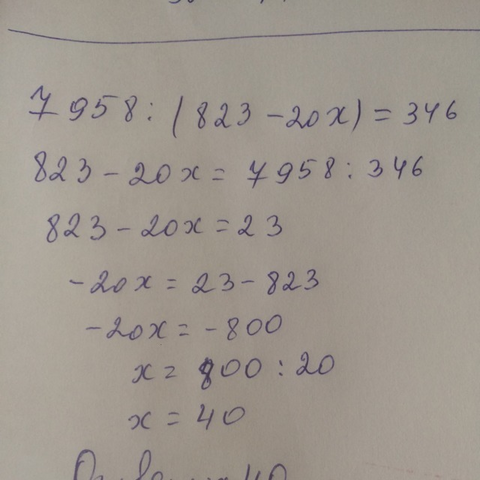 7958 : (823 - 20x) = 346
823 - 20x = 7958 : 346
823 - 20x = 23
-20x = 23 - 823
-20x = -800
x = 800 : 20
x = 40